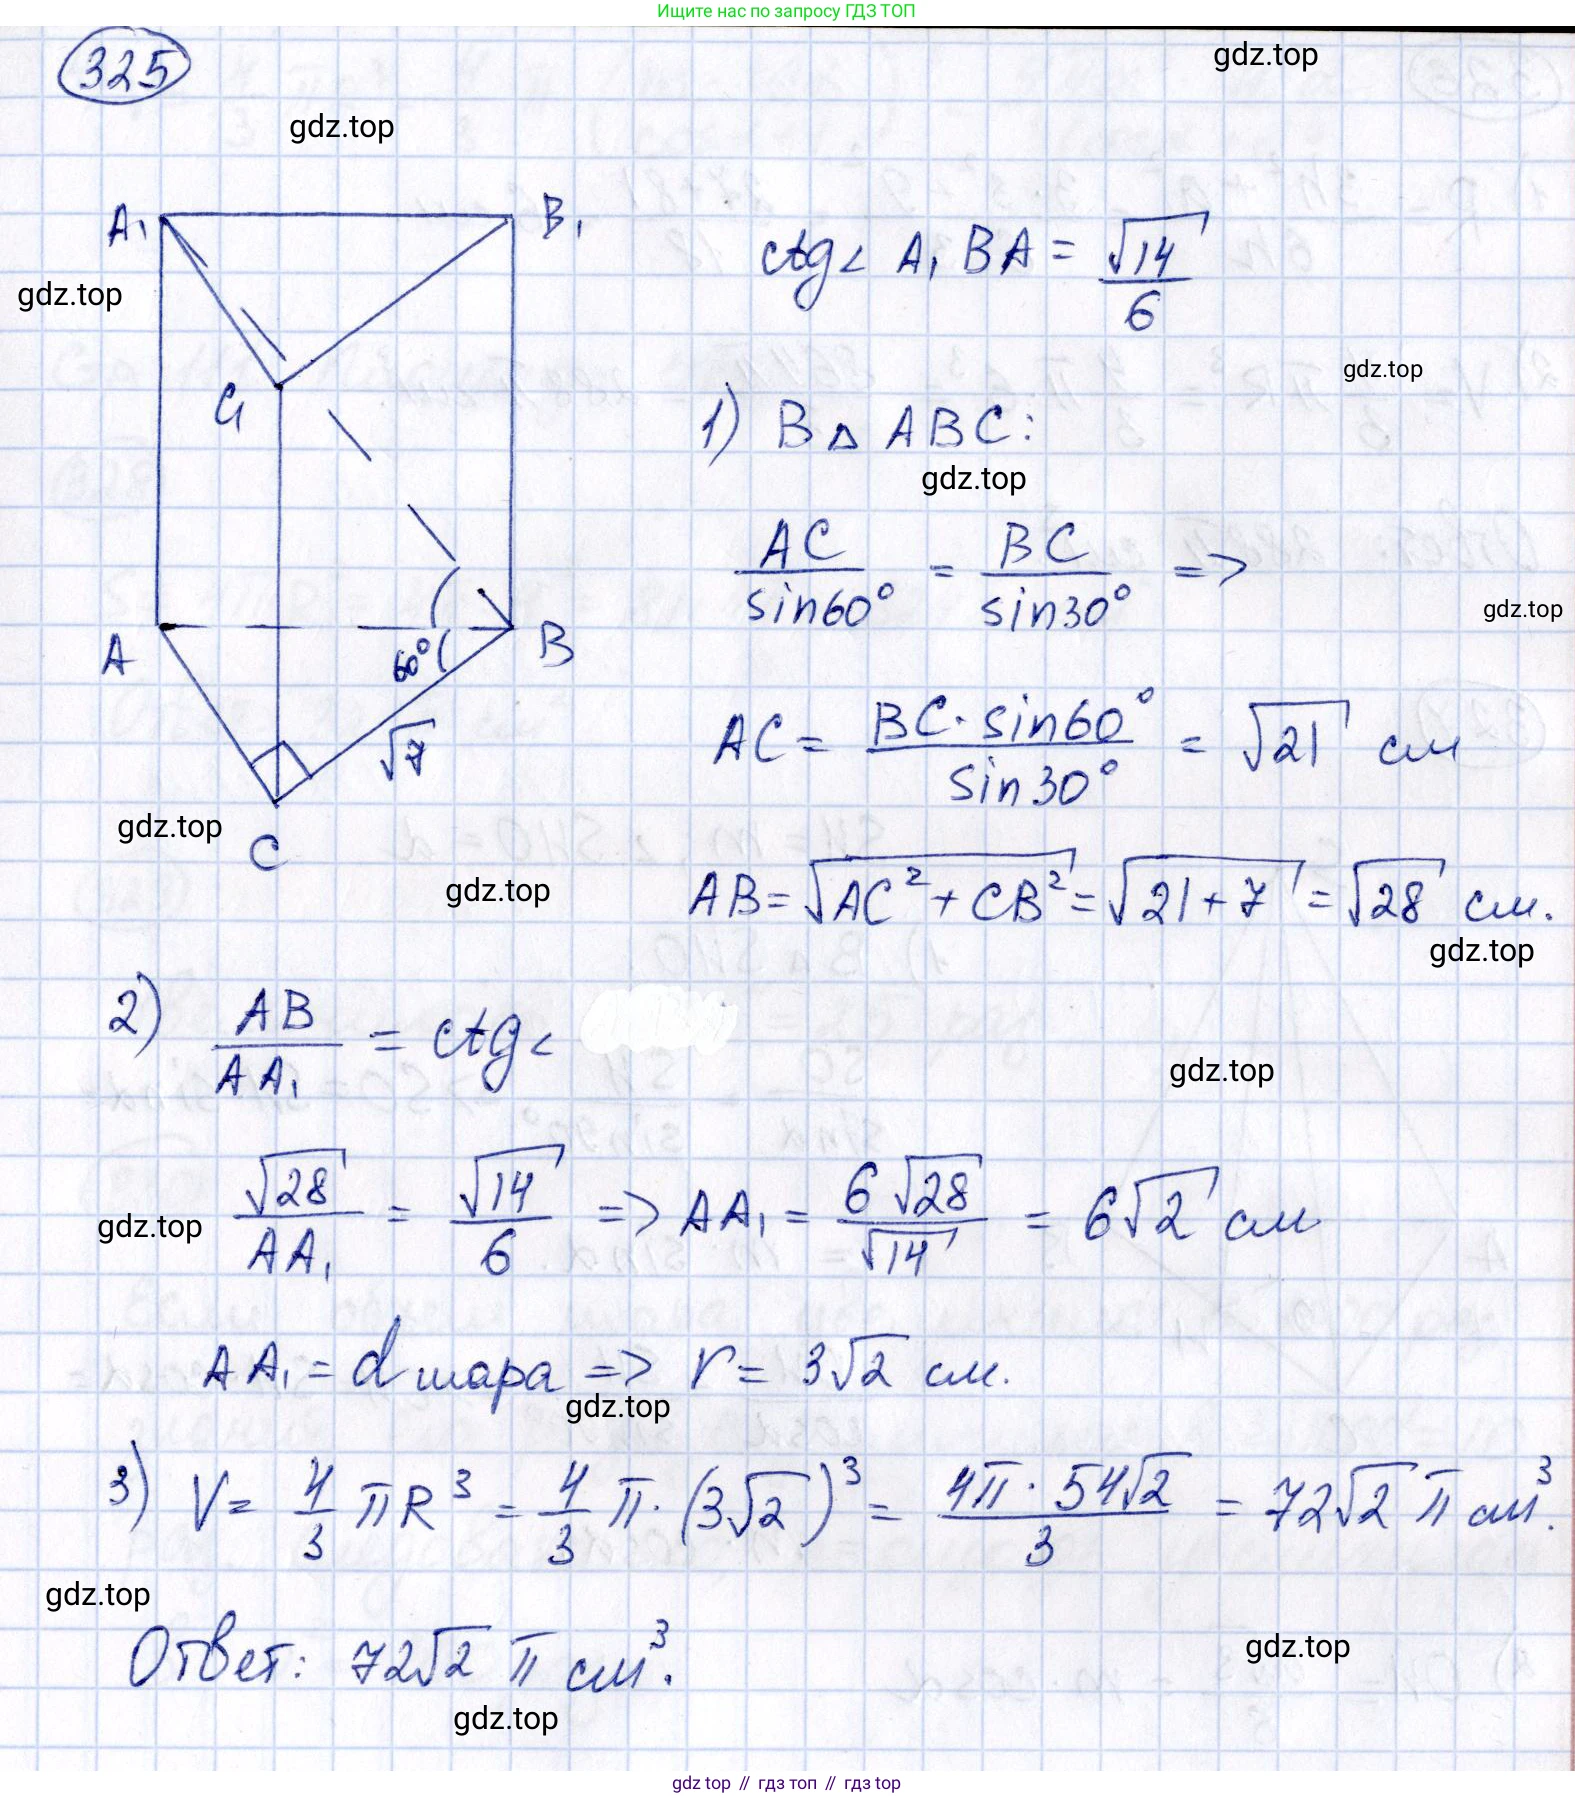 Ищите нас по запросу ГДЗ ТОП
325
gdz.top
gdz.top
A₁
B₁
ctg∠ A₁BA = √14/6
gdz.top
gdz.top
C₁
1) В △ ABC:
gdz.top
AC/sin60° = BC/sin30° =>
gdz.top
A
60°
B
√7
AC = BC·sin60°/sin30° = √21 см
gdz.top
C
gdz.top
AB = √AC² + CB² = √21+7 = √28 см.
gdz.top
2) AB/AA₁ = ctg∠
gdz.top
√28/AA₁ = √14/6 => AA₁ = 6√28/√14 = 6√2 см
gdz.top
AA₁ = d шара => r = 3√2 см.
gdz.top
3) V = 4/3 πR³ = 4/3 π·(3√2)³ = 4π·54√2/3 = 72√2 π см³.
gdz.top
Ответ: 72√2 π см³.
gdz.top
gdz.top
gdz top // гдз топ // гдз top